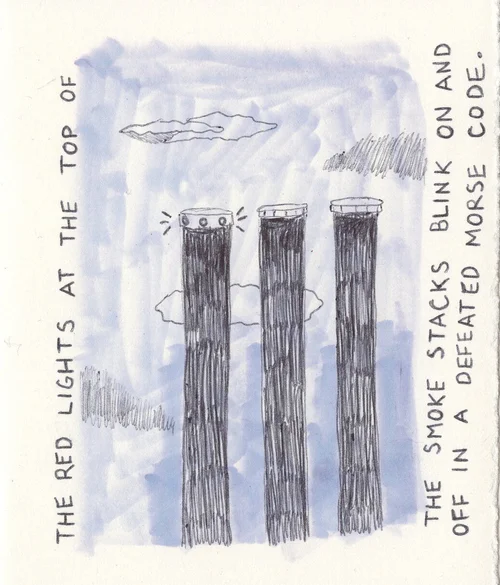 THE RED LIGHTS AT THE TOP OF
THE SMOKE STACKS BLINK ON AND
OFF IN A DEFEATED MORSE CODE.